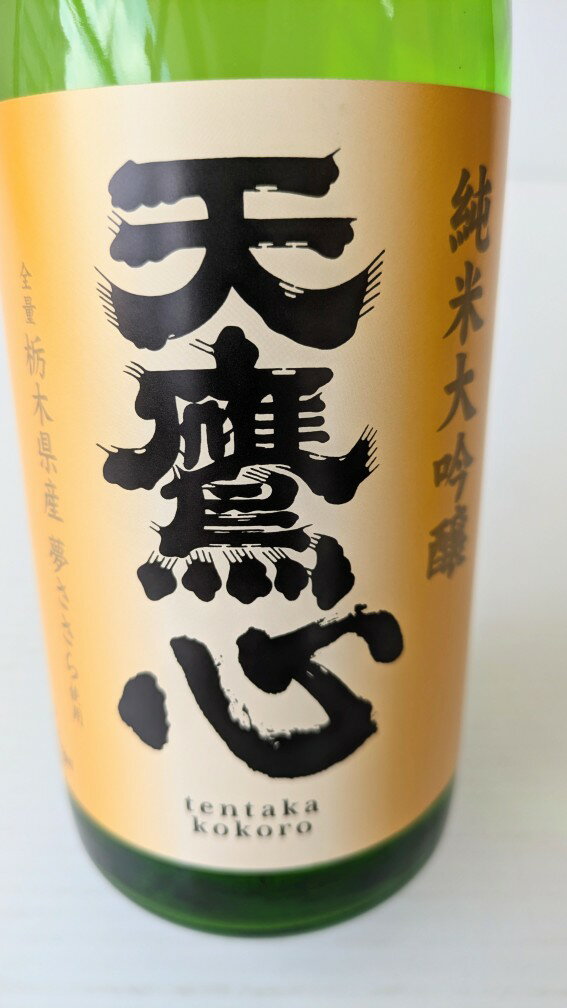 純米大吟醸
天鷹心
全量 栃木県産 夢ささら使用
tentaka
kokoro